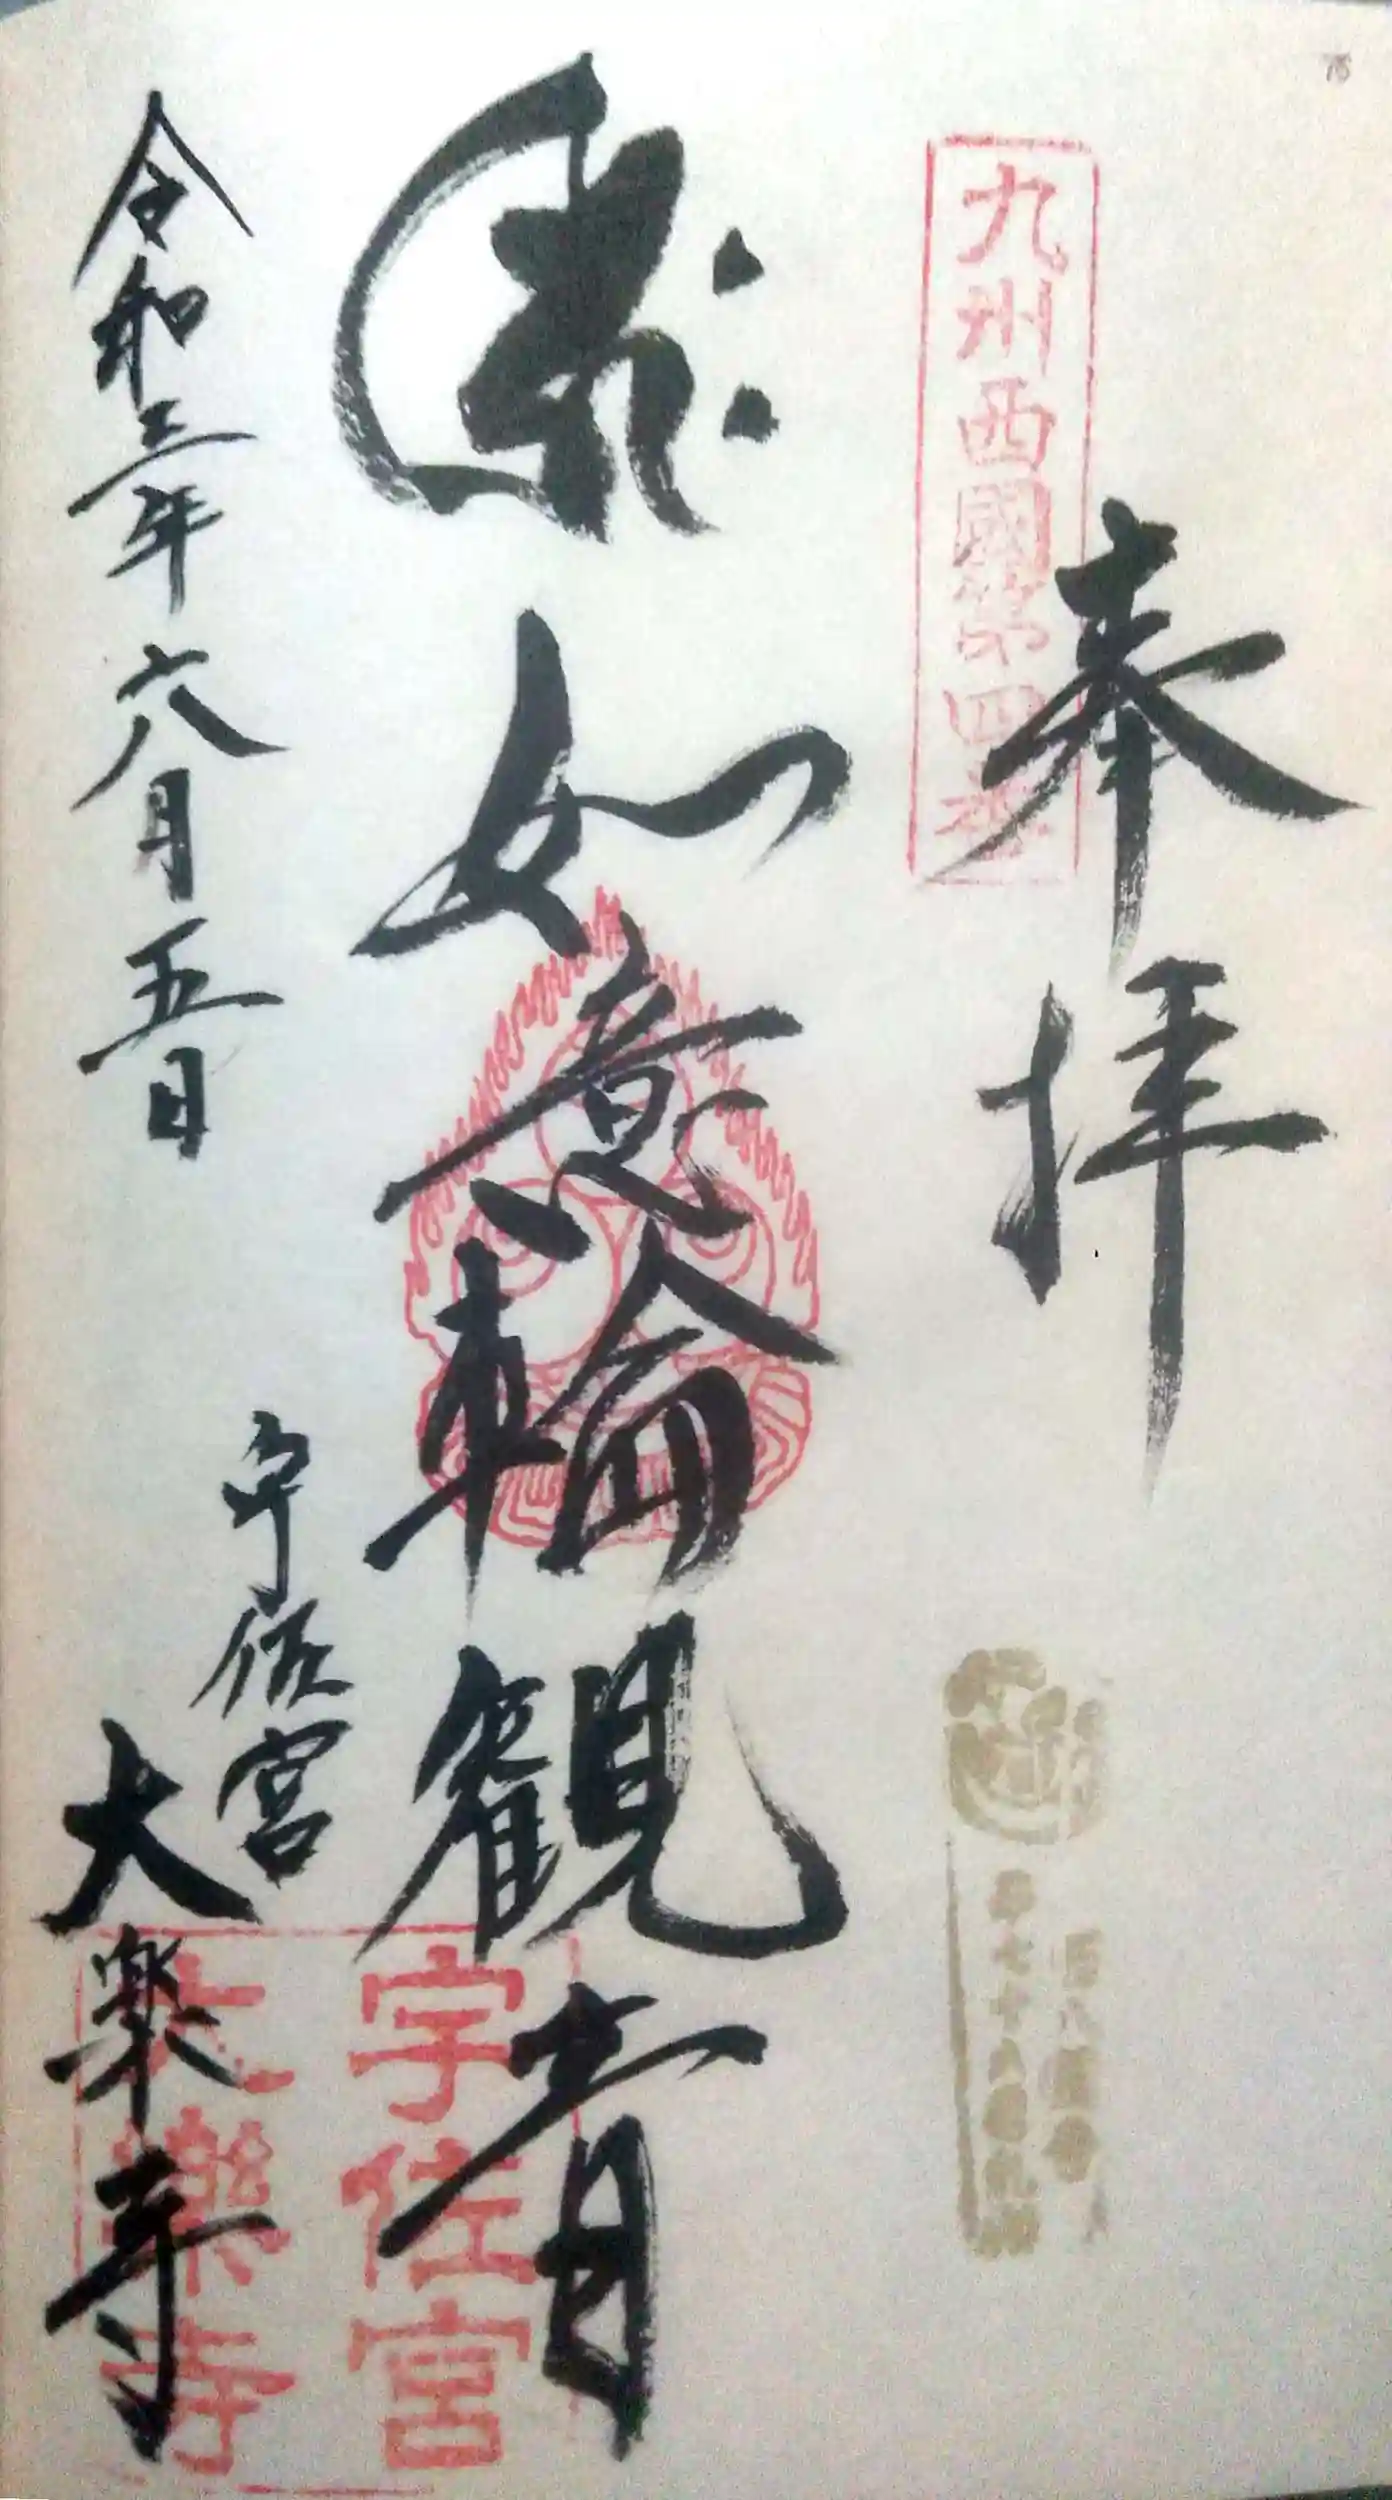 奉拝
九州西國第四番
𑖮𑖿𑖨𑖱𑖾
如意輪観音
宇佐宮
大楽寺
令和三年六月五日
宇佐宮
大樂寺